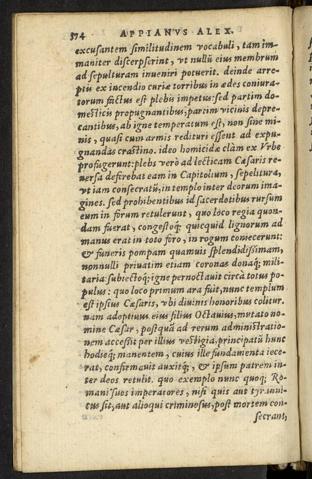 374 APPIANVS ALEX.
excusantem similitudinem vocabuli, tam im-
maniter discerpserint, vt nullũ eius membrum
ad sepulturam inueniri potuerit. deinde arre-
ptis ex incendio curiæ torribus in ædes coniura-
torum factus est plebis impetus: sed partim do-
mesticis propugnantibus, partim vicinis depre-
cantibus, ab igne temperatum est, non sine mi-
nis, quasi cum armis redituri essent ad expu-
gnandas crastino. ideo homicidæ clàm ex Vrbe
profugerunt: plebs verò ad lecticam Cæsaris re-
uersa deferebat eam in Capitolium, sepelitura,
vt iam consecratũ, in templo inter deorum ima-
gines. sed prohibentibus id sacerdotibus rursum
eum in forum retulerunt, quo loco regia quon-
dam fuerat, congestoq; quicquid lignorum ad
manus erat in toto foro, in rogum coniecerunt:
& funeris pompam quamuis splendidissimam,
nonnulli priuatim etiam coronas donaq; mili-
taria: subiectoq; igne pernoctauit circà totus po-
pulus: quo loco primum ara fuit, nunc templum
est ipsius Cæsaris, vbi diuinis honoribus colitur.
nam adoptiuus eius filius Octauius, mutato no-
mine Cæsar, postquã ad rerum administratio-
nem accessit per illius vestigia, principatũ hunc
hodieq; manentem, cuius ille fundamenta iece-
rat, confirmauit auxitq;, & ipsum patrem in-
ter deos retulit. quo exemplo nunc quoq; Ro-
mani suos imperatores, nisi quis aut tyrannI-
cus sit, aut alioqui criminosus, post mortem con-
secrant,